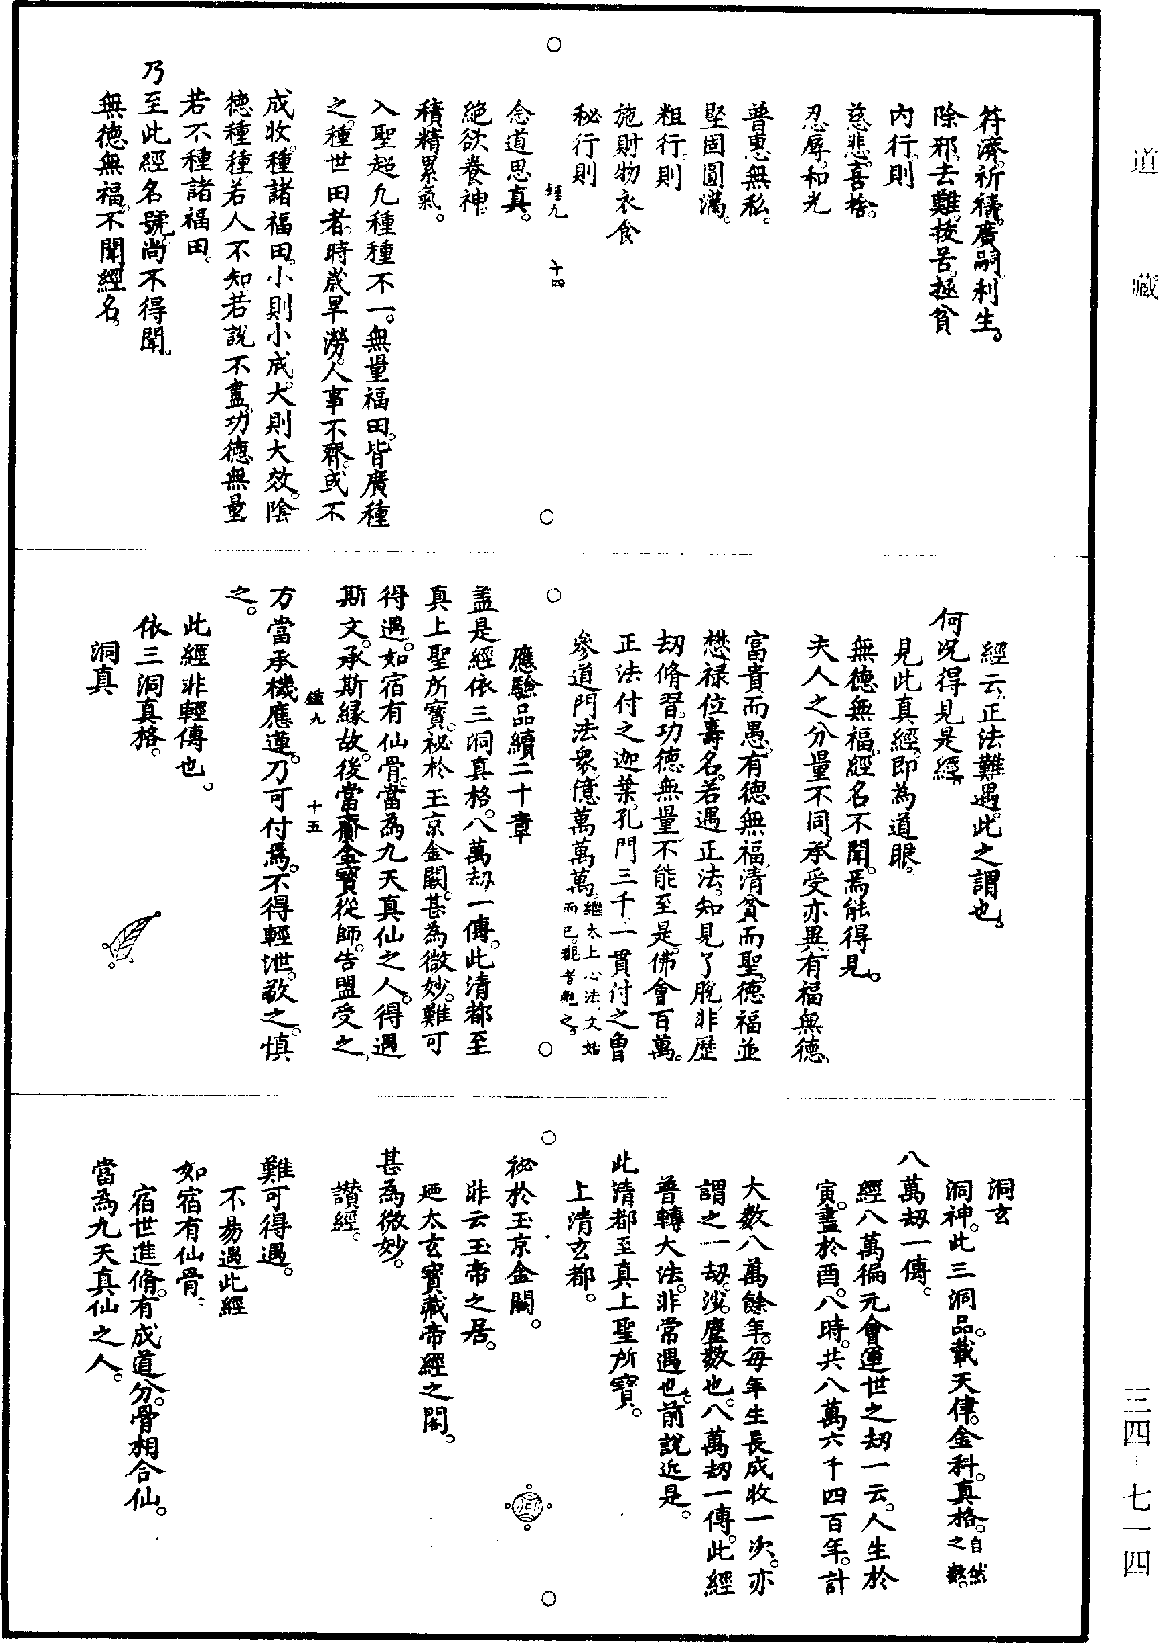 道藏
符濟祈禱廣嗣利生。
除邪去難拔苦拯貧
內行則
慈悲喜捨。
忍辱和光
普惠無私。
堅固圓滿。
粗行則
施財物衣食
秘行則
念道思真。
絕欲養神
積精累氣。
入聖超凡種種不一。無量福田。皆廣種
之。種世田者。時歲旱澇。人事不齊。或不
成收。種諸福田。小則小成。大則大效。陰
德種種。若人不知。若說不盡。功德無量
若不種諸福田。
乃至此經名號。尚不得聞。
無德無福。不聞經名。
經云。正法難遇。此之謂也。
何況得見是經
見此真經。即為道眼。
無德無福。經名不聞。焉能得見。
夫人之分量不同。承受亦異。有福無德。
富貴而愚。有德無福。清貧而聖。德福並
懋。祿位壽名。若遇正法。知見了脫。非歷
劫脩習。功德無量。不能至是。佛會百萬。
正法付之迦葉。孔門三千。一貫付之曾
參。道門法衆。億萬萬萬。繼太上心法。文始而已。
應驗品續二十章
蓋是經依三洞真格。八萬劫一傳。此清都至
真上聖所寶。祕於玉京金闕。甚為微妙。難可
得遇。如宿有仙骨。當為九天真仙之人。得遇
斯文。承斯緣故。後當齎金寶。從師告盟受之。
方當承機應運。乃可付焉。不得輕泄。敬之。慎
之。
此經非輕傳也。
依三洞真格。
洞真
洞玄
洞神。此三洞品。載天律。金科。真格。自然之數。
八萬劫一傳。
經八萬徧元會運世之劫。一云。人生於
寅。盡於酉。八時。共八萬六千四百年。計
大數八萬餘年。每年生長成收一次。亦
謂之一劫。沙塵數也。八萬劫一傳。此經
普轉大法。非常遇也。前說近是。
此清都至真上聖所寶。
上清玄都。
祕於玉京金闕。
非云玉帝之居。
廼太玄寶藏帝經之閣。
甚為微妙。
讚經。
難可得遇。
不易遇此經
如宿有仙骨。
宿世進脩。有成道分。骨相合仙。
當為九天真仙之人。
三四·七一四